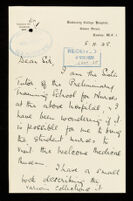 University College Hospital,
Gower Street,
London, W.C.1
5.11.35
RECEIVED
Dear Sir,
I am the Sister
Tutor of the Preliminary
Training School for Nurses
at the above hospital, & I
have been wondering if it
is possible for me to bring
the student nurses to
visit the Wellcome Medical
Museum.
I have a small
book describing the
various collections it